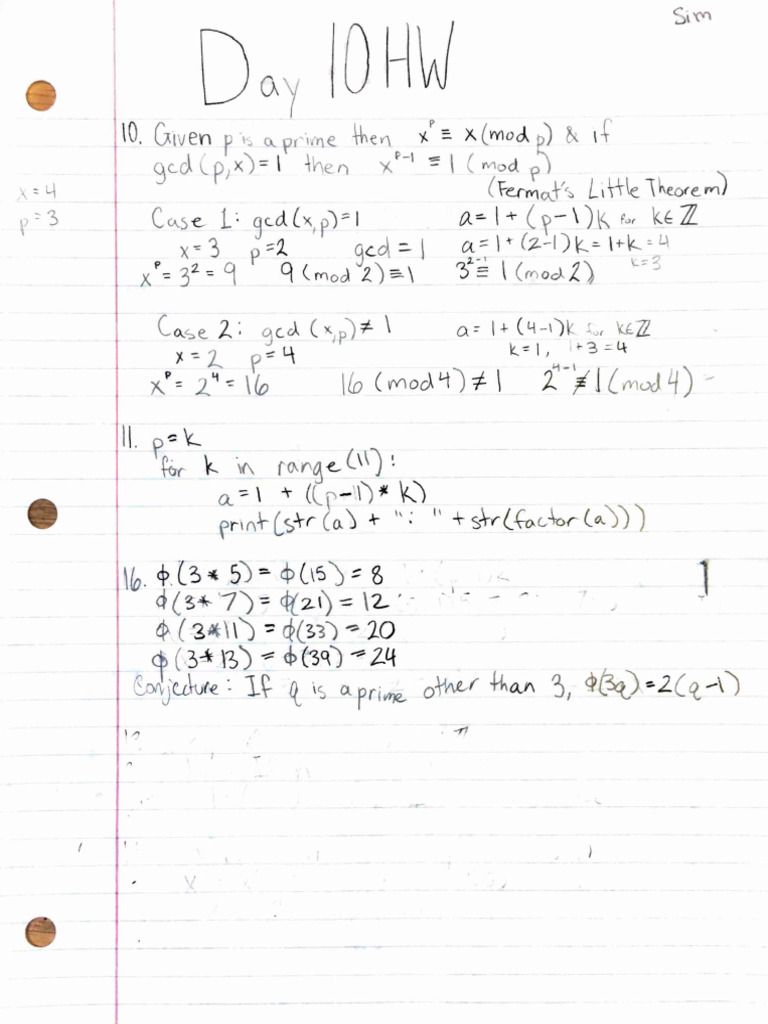 Sim
Day 10 HW
10. Given p is a prime then x^p ≡ x (mod p) & if
gcd (p,x) = 1 then x^(p-1) ≡ 1 (mod p)
(Fermat's Little Theorem)
x = 4
p = 3
Case 1: gcd(x,p)=1 a = 1 + (p-1)k for k∈ℤ
x = 3 p = 2 gcd = 1 a = 1 + (2-1)k = 1+k = 4
k=3
x^p = 3^2 = 9 9 (mod 2) ≡ 1 3^(2-1) ≡ 1 (mod 2)
Case 2: gcd (x,p) ≠ 1 a = 1 + (4-1)k for k∈ℤ
x = 2 p = 4 k = 1, 1+3 = 4
x^p = 2^4 = 16 16 (mod 4) ≠ 1 2^(4-1) ≢ 1 (mod 4)
11. p = k
for k in range(11):
a = 1 + ((p-1)* k)
print(str(a) + ": " + str(factor(a)))
16. φ(3*5) = φ(15) = 8
φ(3*7) = φ(21) = 12
φ(3*11) = φ(33) = 20
φ(3*13) = φ(39) = 24
Conjecture: If q is a prime other than 3, φ(3q) = 2(q-1)